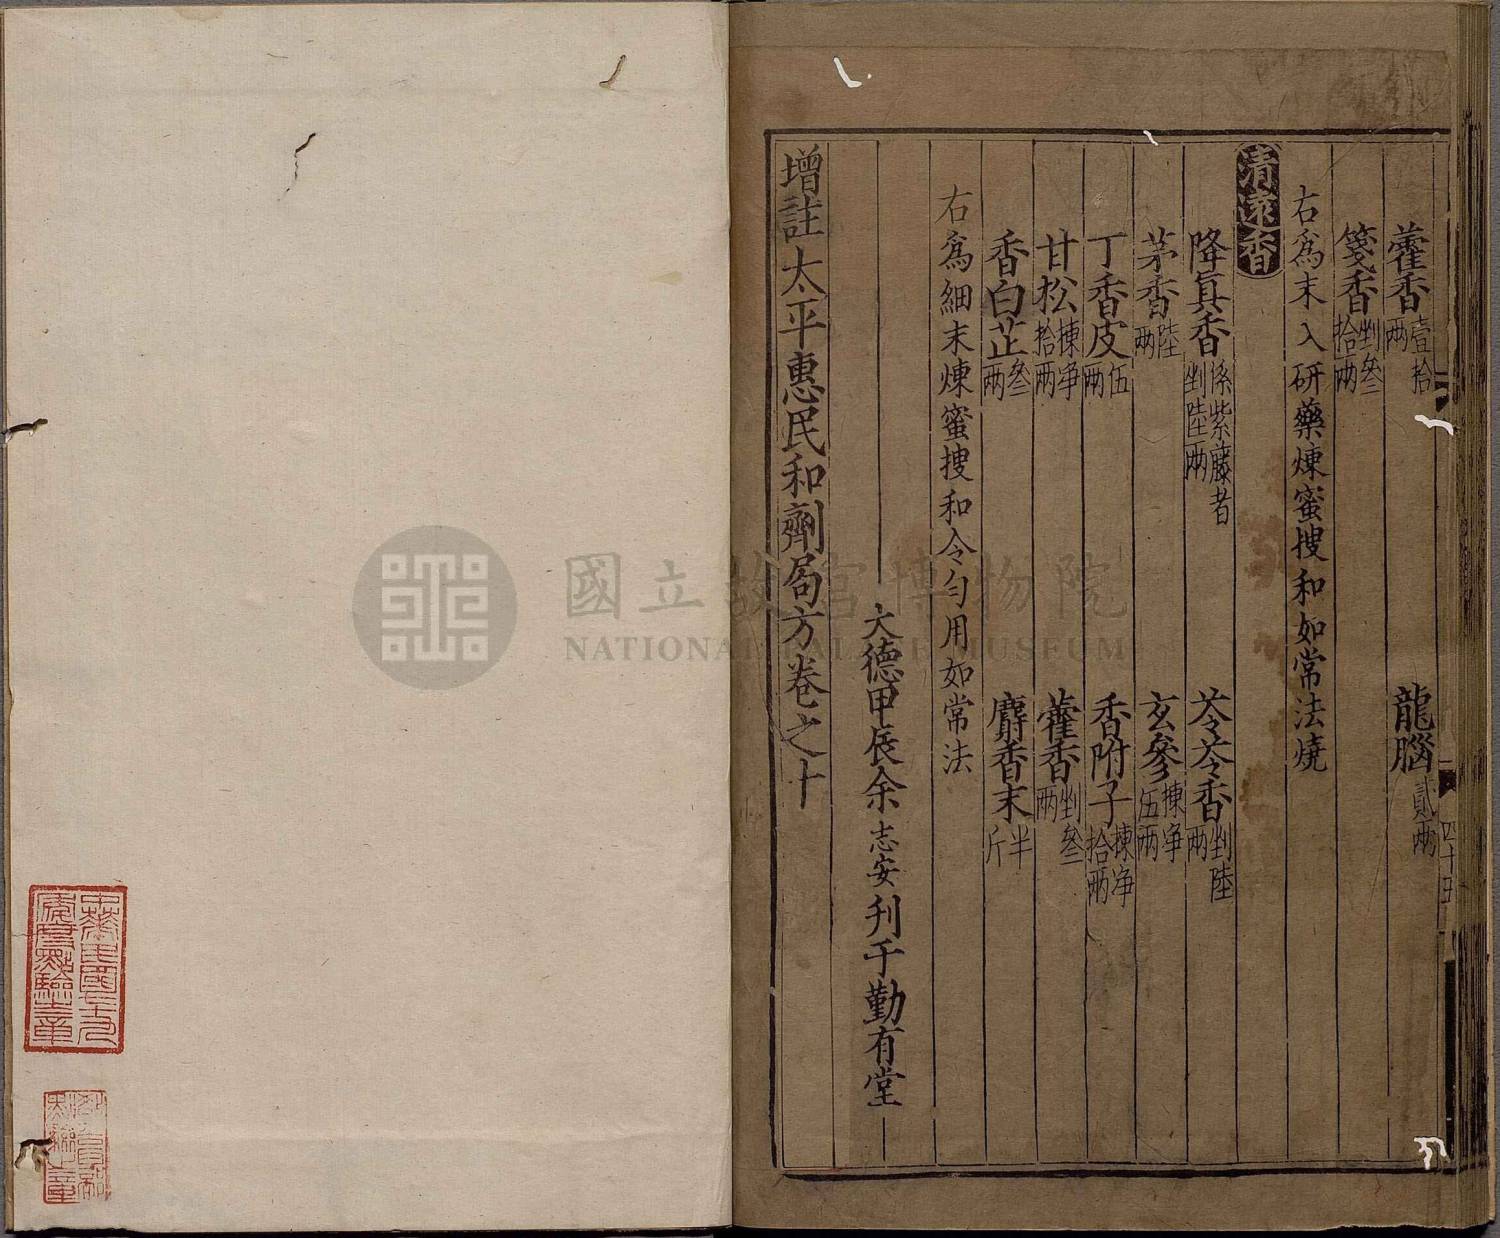 藿香壹拾兩 龍腦貳兩
箋香剉叁拾兩
右為末入研藥煉蜜搜和如常法燒
清遠香
降眞香係紫藤者剉陸兩 苓苓香剉陸兩
茅香陸兩 玄參揀净伍兩
丁香皮伍兩 香附子揀净拾兩
甘松揀净拾兩 藿香剉叁兩
香白芷叁兩 麝香末半斤
右為細末煉蜜搜和令匀用如常法
大德甲辰余志安刋于勤有堂
增註太平惠民和劑局方卷之十
四十五
國立故宮博物院
NATIONAL PALACE MUSEUM